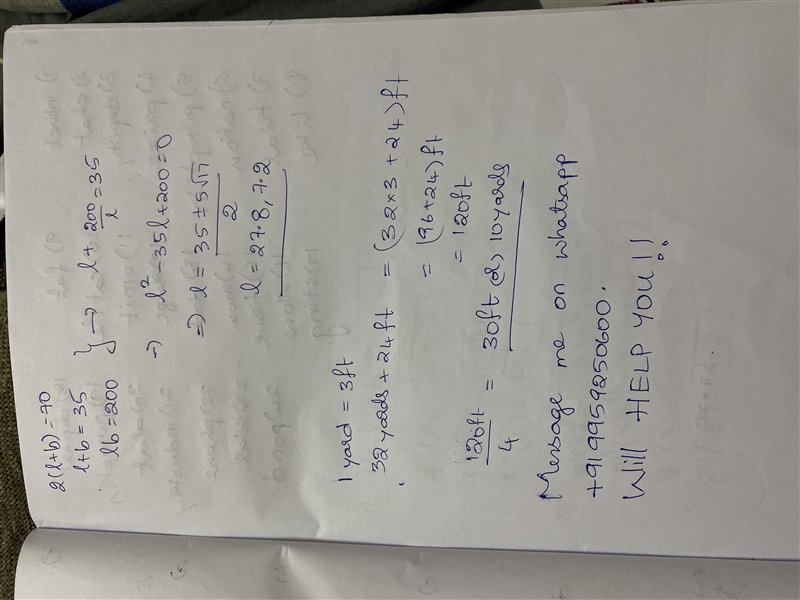 2(l+b) = 70
l+b = 35
lb = 200
} → l + 200/l = 35
⇒ l² - 35l + 200 = 0
⇒ l = 35 ± 5√17 / 2
l = 27.8, 7.2
1 yard = 3ft
32 yards + 24 ft = (32×3 + 24) ft
= (96 + 24) ft
= 120ft
120ft/4 = 30ft (or) 10 yards
Message me on whatsapp
+919959250600.
Will HELP YOU!!